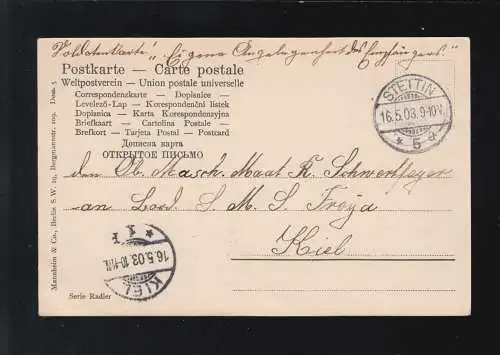 "Soldatenkarte", "Eigene Angelegenheit des Empfängers."
Postkarte — Carte postale
Weltpostverein — Union postale universelle
Correspondenzkarte — Dopisnice —
Levelező-Lap — Korespondenční listek
Dopisnica — Karta Korespondencyjna
Briefkaart — Cartolina Postale —
Brefkort — Tarjeta Postal — Postcard
Дописна карта
ОТКРЫТОЕ ПИСЬМО
STETTIN
16.5.03. 9-10V.
* 5 a
den Ob. Masch. Maat R. Schwertfeger
an Bord S. M. S. Freya
Kiel
KIEL
16.5.03.
* 1
Mannheim & Co., Berlin S.W. 29, Bergmannstr. 109. Dess. 5
Serie Radler